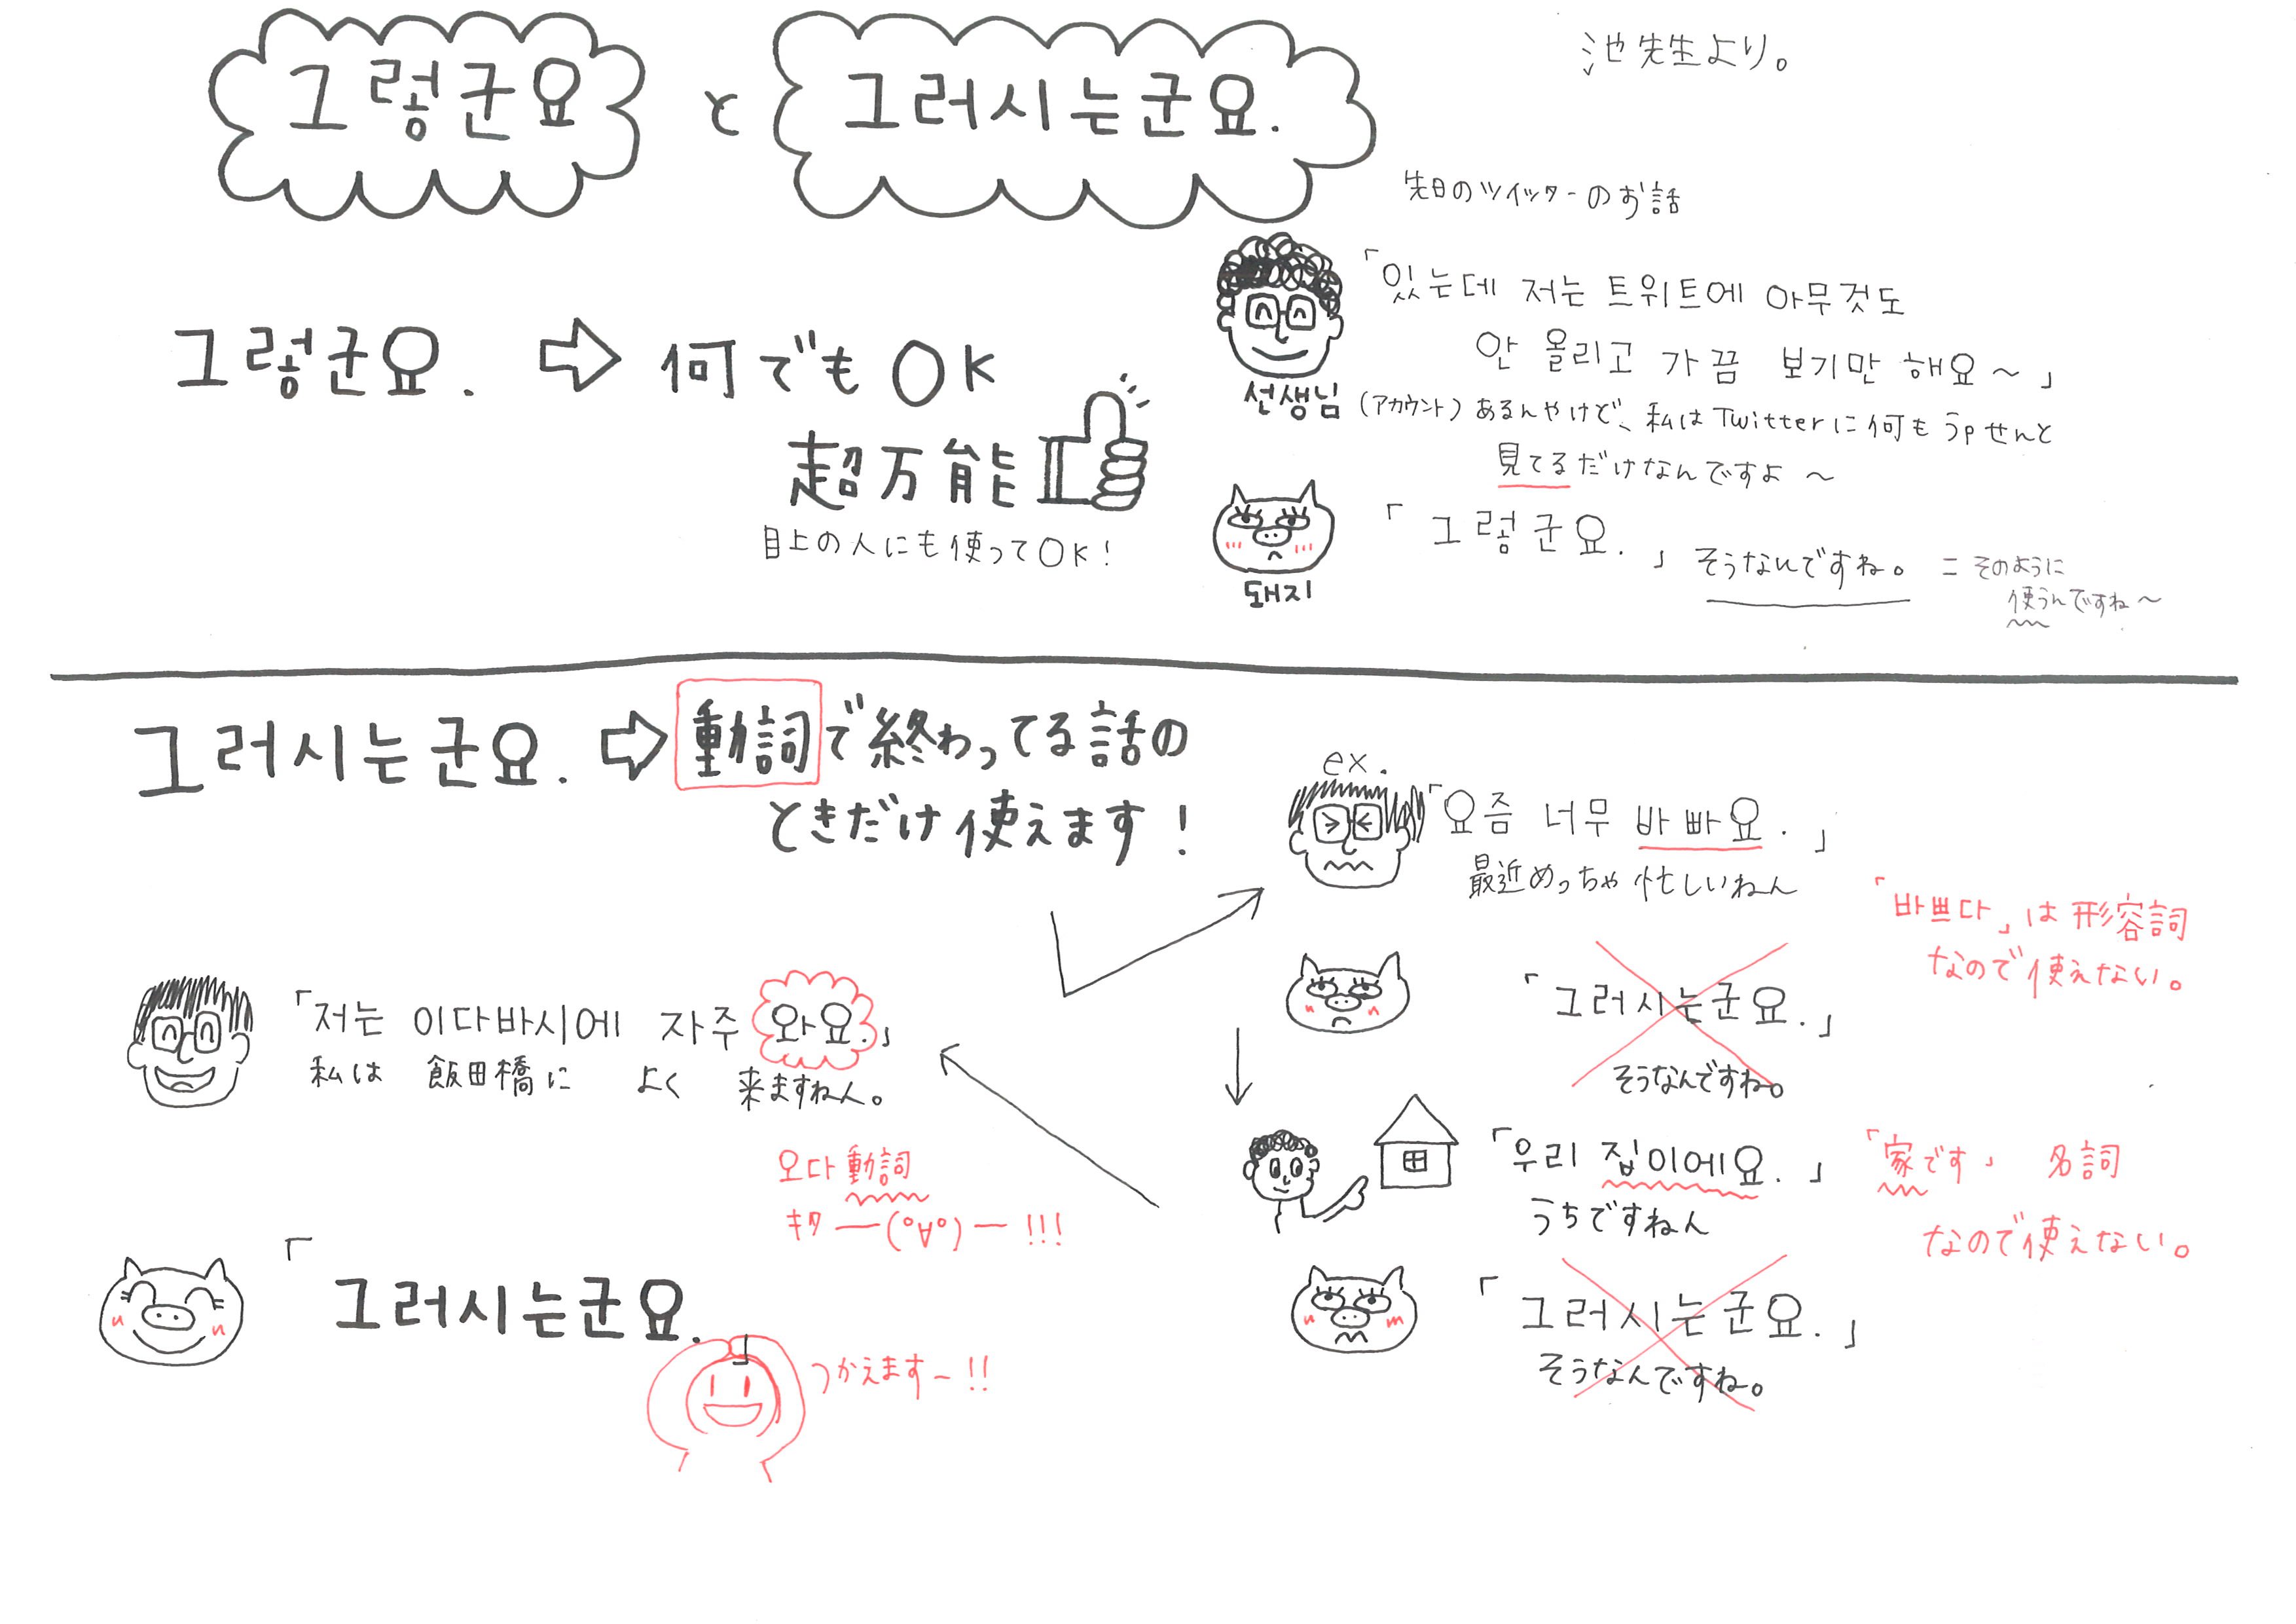 그렇군요 と 그러시는군요.
池先生より。
그렇군요. ⇨ 何でもOK
超万能
目上の人にも使ってOK!
先日のツイッターのお話
「있는데 저는 트위트에 아무것도
안 올리고 가끔 보기만 해요~」
선생님
(アカウント)あるんやけど、私はTwitterに何もうpせんと
見てるだけなんですよ〜
「그렇군요.」そうなんですね。=そのように
使うんですね〜
돼지
그러시는군요. ⇨ 動詞で終わってる話の
ときだけ使えます!
ex.
「요즘 너무 바빠요.」
最近めっちゃ忙しいねん
「바쁘다」は形容詞
なので使えない。
「그러시는군요.」
そうなんですね。
「우리 집이에요.」
うちですねん
「家です」 名詞
なので使えない。
「그러시는군요.」
そうなんですね。
「저는 이다바시에 자주 와요.」
私は 飯田橋に よく 来ますねん。
오다 動詞
キタ—(°∀°)—!!!
「그러시는군요.」
つかえます〜!!